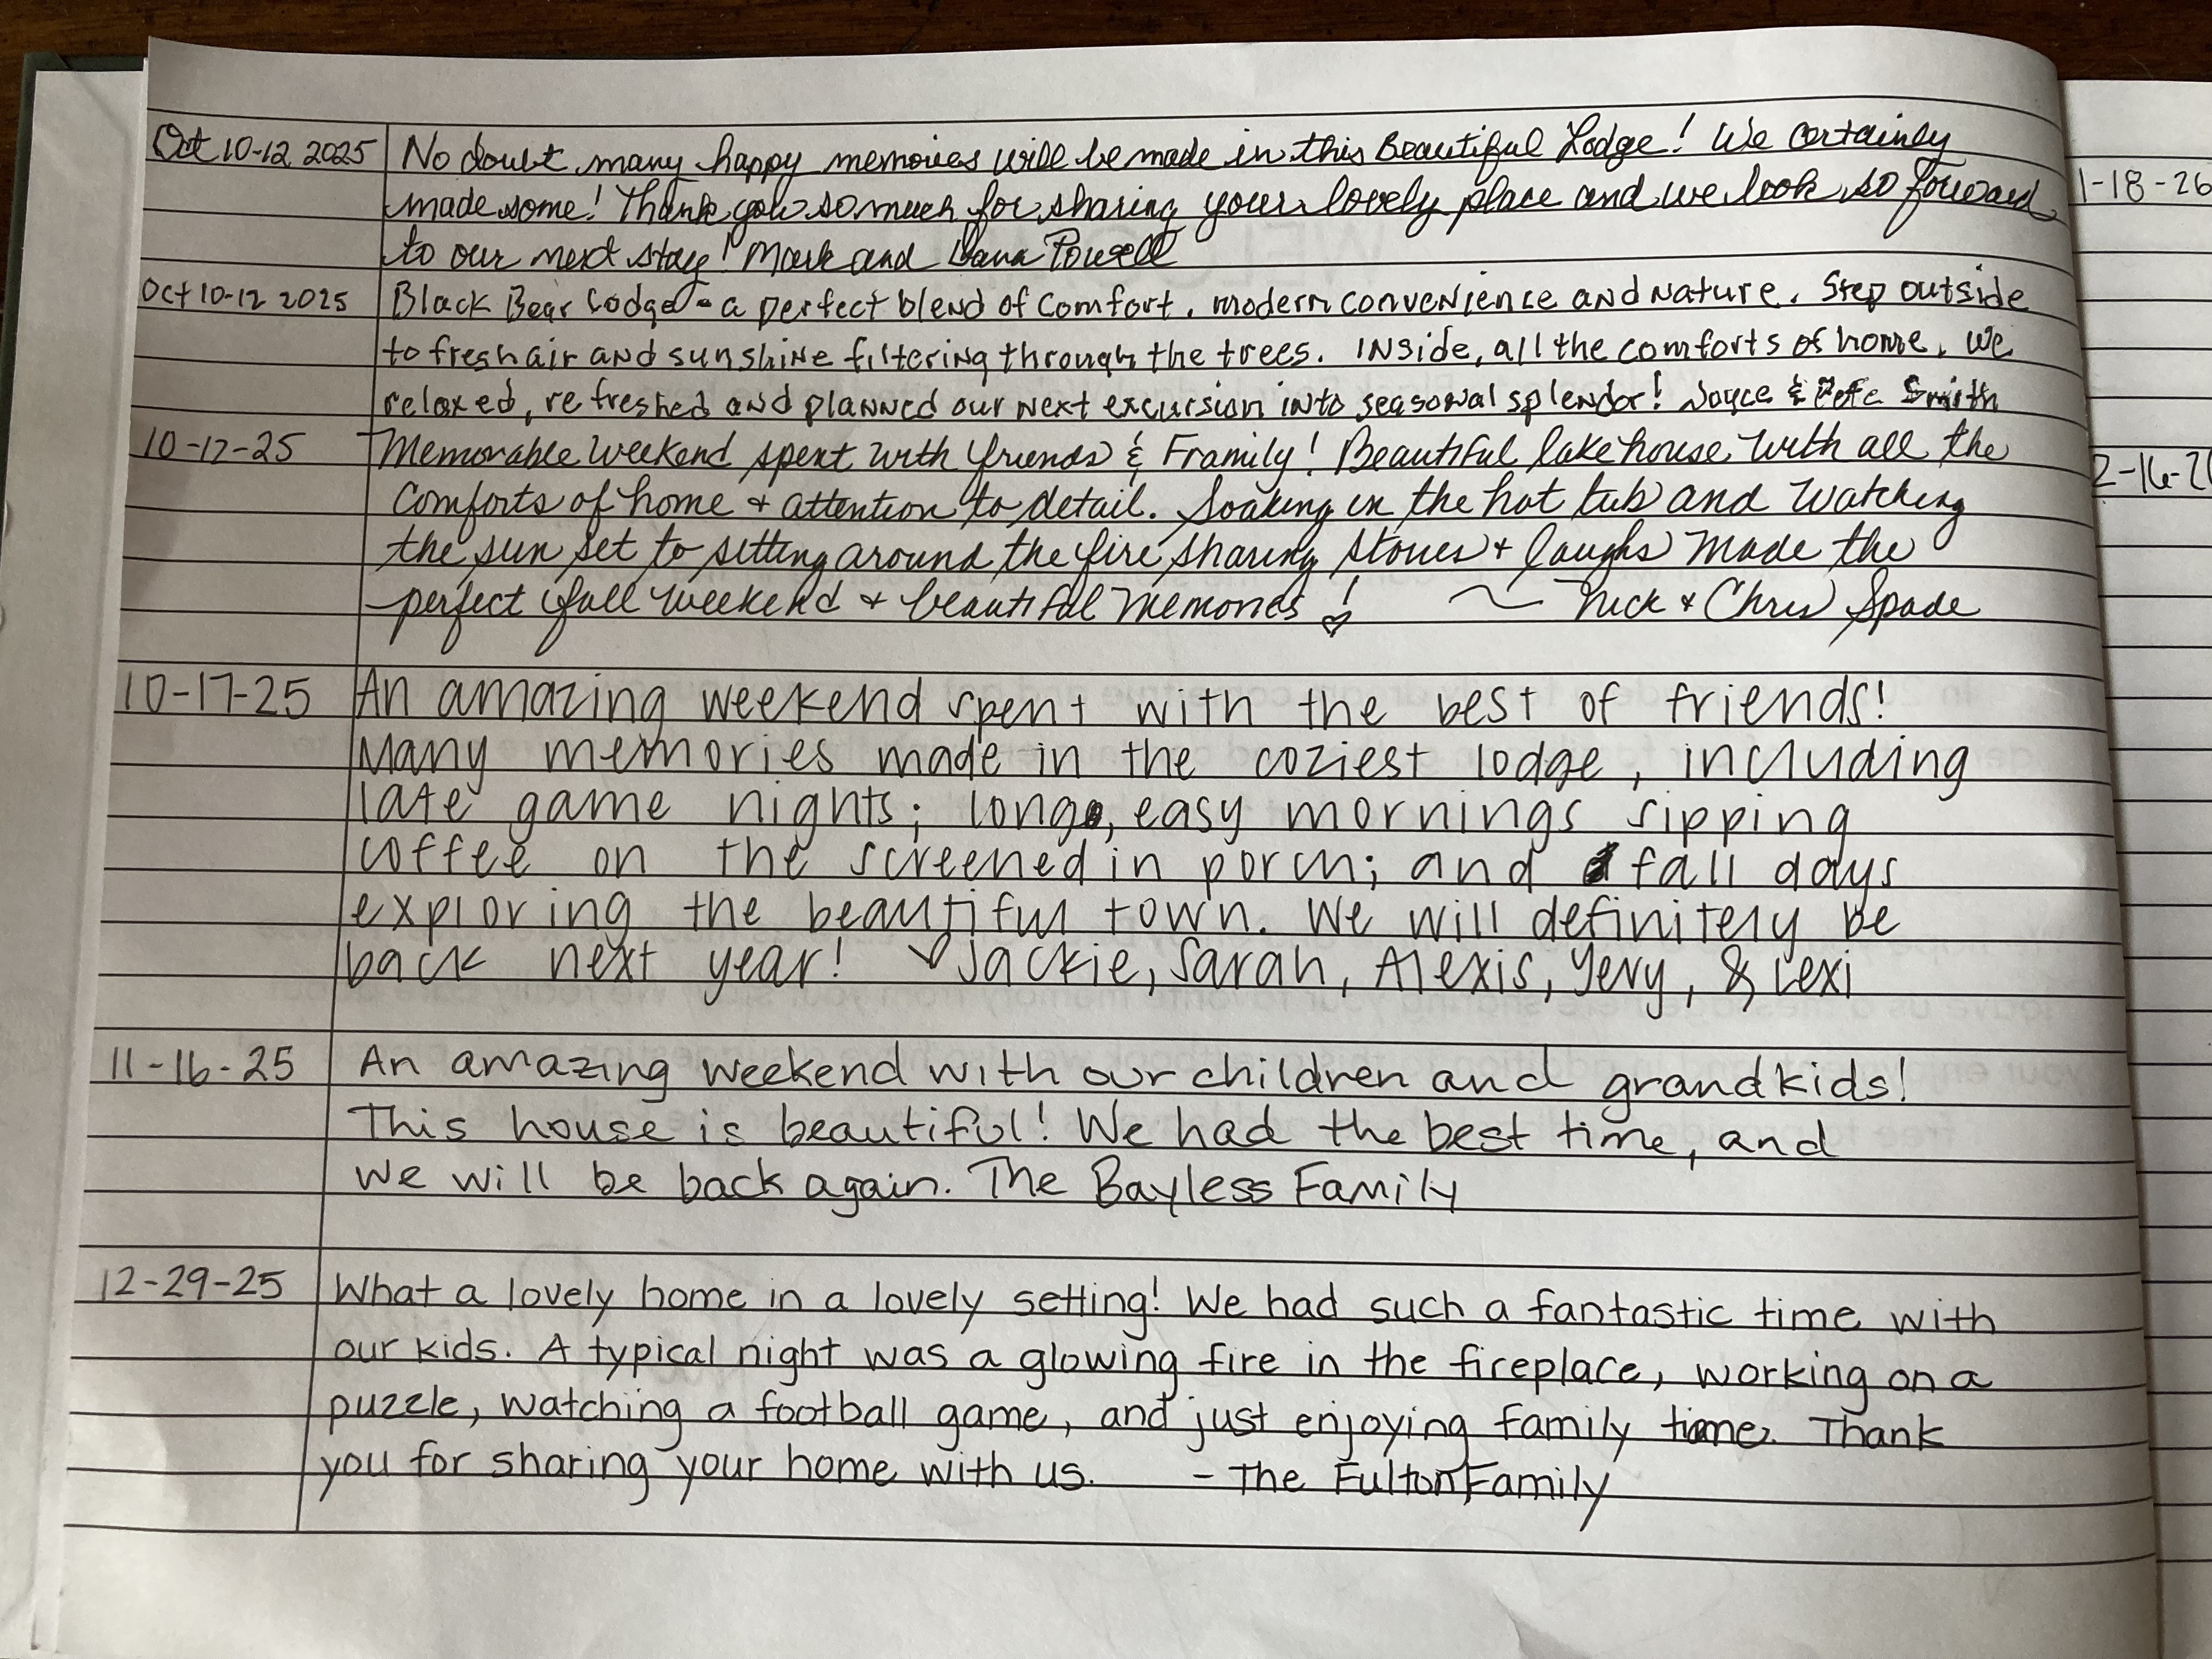 Oct 10-12 2025 No doubt many happy memories will be made in this Beautiful Lodge! We certainly
made some! Thank you so much for sharing your lovely place and we look so forward
to our next stay! Mark and Dana Powell
Oct 10-12 2025 Black Bear Lodge - a perfect blend of comfort, modern convenience and nature. Step outside
to fresh air and sunshine filtering through the trees. Inside, all the comforts of home. We
relaxed, refreshed and planned our next excursion into seasonal splendor! Joyce & Pete Smith
10-12-25 Memorable weekend spent with friends & Framily! Beautiful lakehouse with all the
comforts of home + attention to detail. Soaking in the hot tub and watching
the sun set to sitting around the fire sharing stories + laughs made the
perfect fall weekend + beautiful memories! ~ Nick + Chris Spade
10-17-25 An amazing weekend spent with the best of friends!
Many memories made in the coziest lodge, including
late game nights; long, easy mornings sipping
coffee on the screened in porch; and fall days
exploring the beautiful town. We will definitely be
back next year! ♡ Jackie, Sarah, Alexis, Yevy, & Lexi
11-16-25 An amazing weekend with our children and grandkids!
This house is beautiful! We had the best time, and
we will be back again. The Bayless Family
12-29-25 What a lovely home in a lovely setting! We had such a fantastic time with
our kids. A typical night was a glowing fire in the fireplace, working on a
puzzle, watching a football game, and just enjoying family time. Thank
you for sharing your home with us. - The Fulton Family
1-18-26